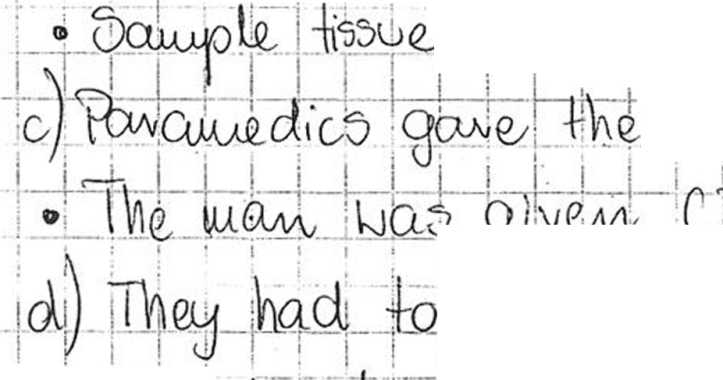 • Sample tissue
c) Paramedics gave the
• The man was given
d) They had to